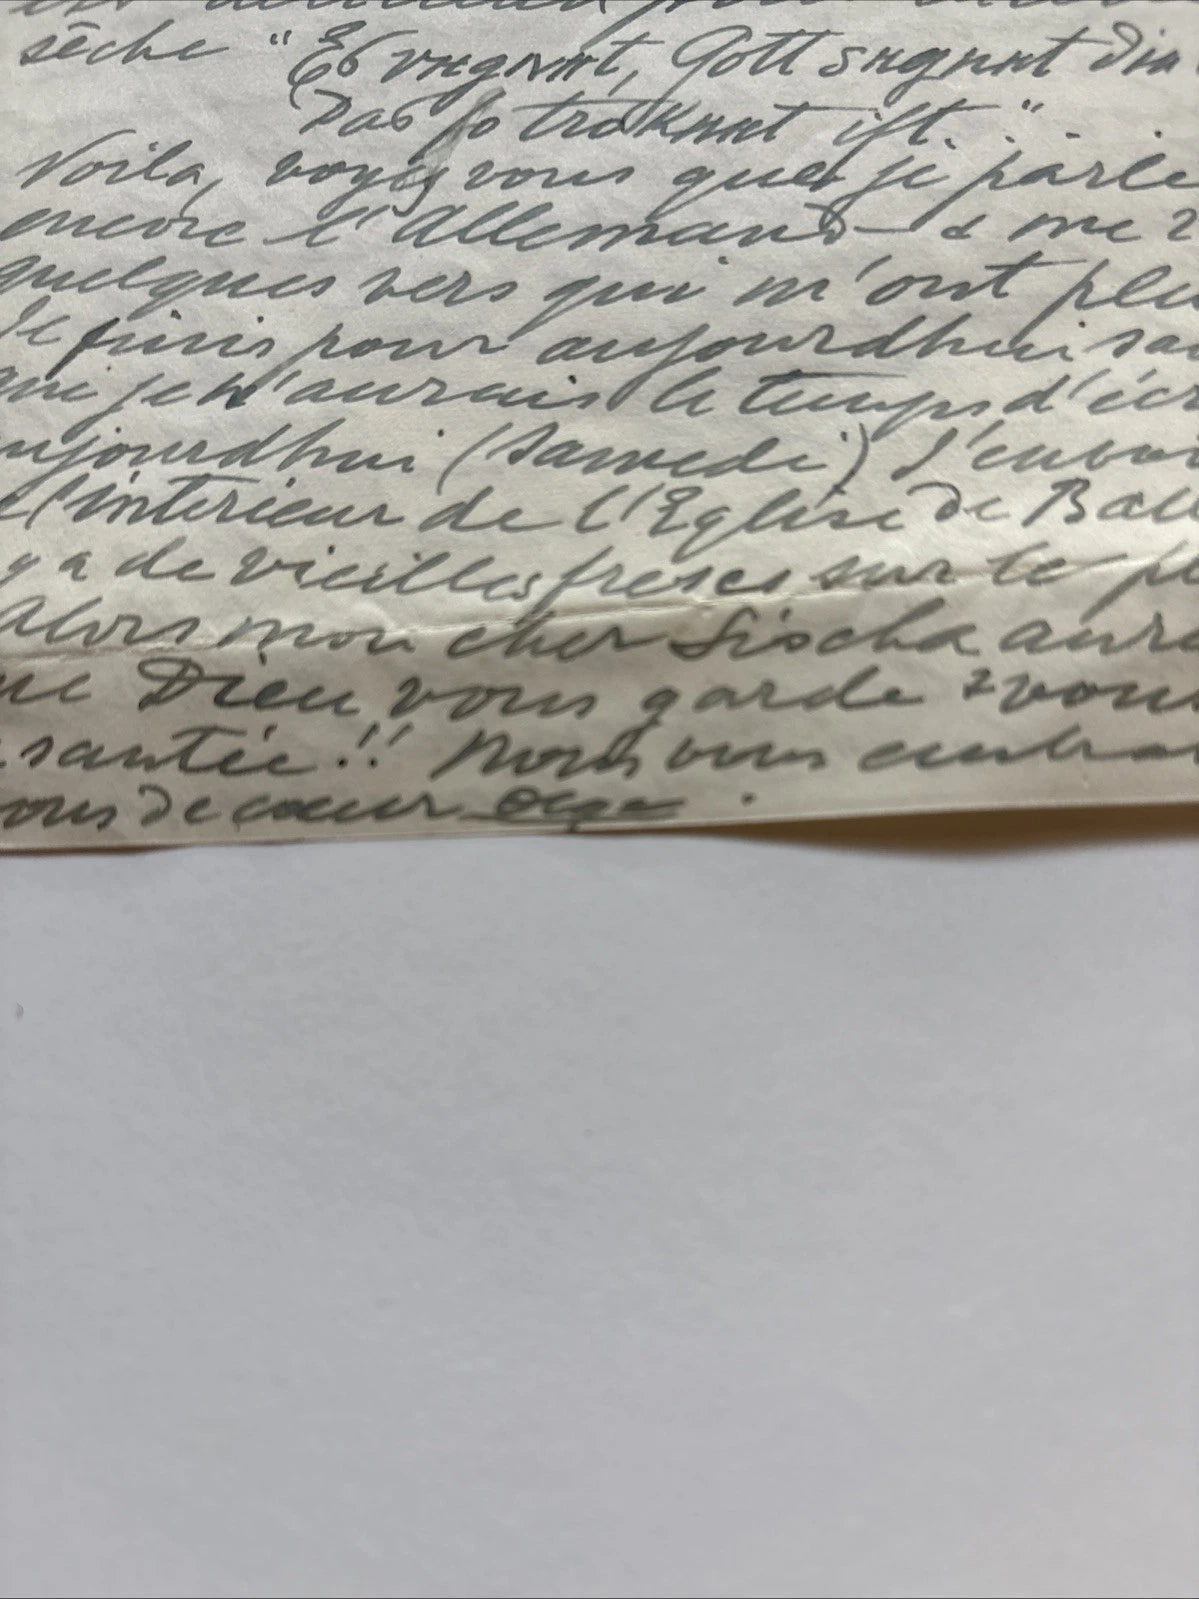 sêche "Es regnet, Gott segnet die
Das so trocken ist."
Voila, voyez vous que je parle
encore l'Allemand & me
quelques vers qui m'ont plu
Je finis pour aujourdhui
que je n'aurais le temps d'écr
aujourdhui (Samedi) J'envoi
l'intérieur de l'Eglise de Ball
y a de vieilles fresces sur le pl
Alors mon cher Sischa aure
que Dieu vous garde & vous
santée!! Nous vous embra
vous de coeur Olga.